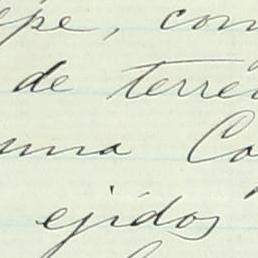 epe, con
de terre
una Co
ejidos